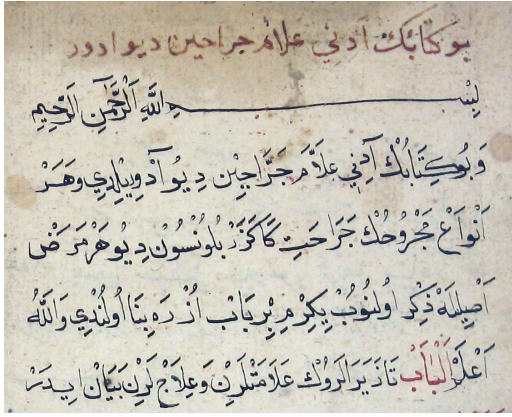 بو كتابك آدنی علائم جراحین دیو ادور
بِسْمِ اللَّهِ الرَّحْمٰنِ الرَّحِيمِ
وَبُو كِتَابُكْ آدِنِي عَلَّامِ جَرَّاحِينْ دِيُو آدْ وِيرِلْدِي وَهَرْ
اَنْوَاعْ مَجْرُوحُكْ جَرَاحَتِ بُلُونْسُونْ دِيُو هَرْ مَرَضْ
اَصْلِيلَهْ ذِكْر اُولُنُوبْ يِكِرْمِ بِرْ بَابْ اُزْرَهِ بِنَا اُولُنْدِي وَاللَّهُ
اَعْلَمْ اَلْبَابْ عَلَامَتْلَرِنْ وَعِلَاجْلَرِنْ بَيَانْ اِيدَرْ